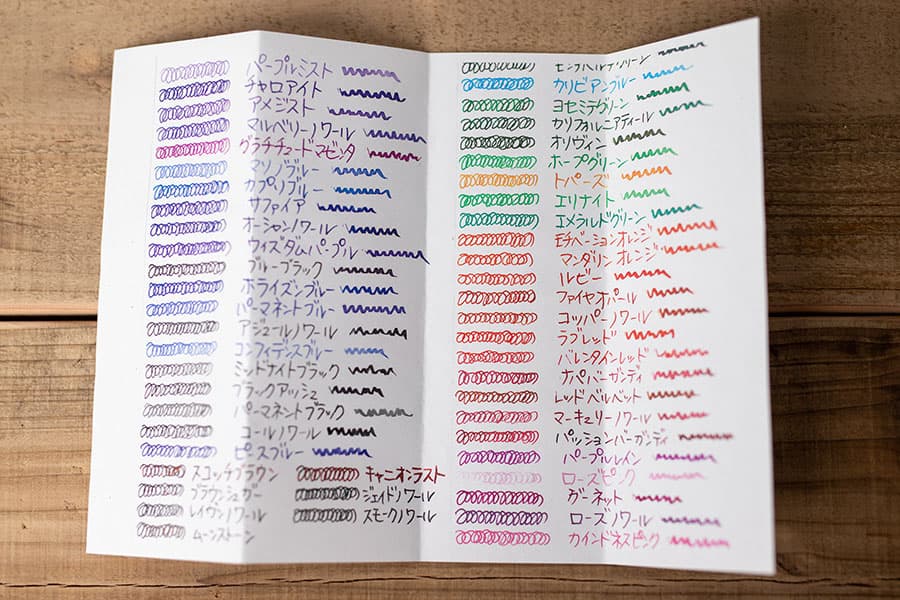 パープルミスト
チャロアイト
アメジスト
マルベリーノワール
グラチチュードマゼンタ
マリノブルー
カプリブルー
サファイア
オーシャンノワール
ウィズダムパープル
ブルーブラック
ホライズンブルー
パーマネントブルー
アジュールノワール
コンフィデンスブルー
ミッドナイトブラック
ブラックアッシュ
パーマネントブラック
コールノワール
ピースブルー
スコッチブラウン キャニオンラスト
ブラウンシュガー ジェイドノワール
レイヴンノワール スモークノワール
ムーンストーン
モンテベルデグリーン
カリビアンブルー
ヨセミテグリーン
カリフォルニアティール
オリヴィン
ホープグリーン
トパーズ
エリナイト
エメラルドグリーン
モチベーションオレンジ
マンダリンオレンジ
ルビー
ファイヤオパール
コッパーノワール
ラブレッド
バレンタインレッド
ナパバーガンディ
レッドベルベット
マーキュリーノワール
パッションバーガンディ
パープルレイン
ローズピンク
ガーネット
ローズノワール
カインドネスピンク